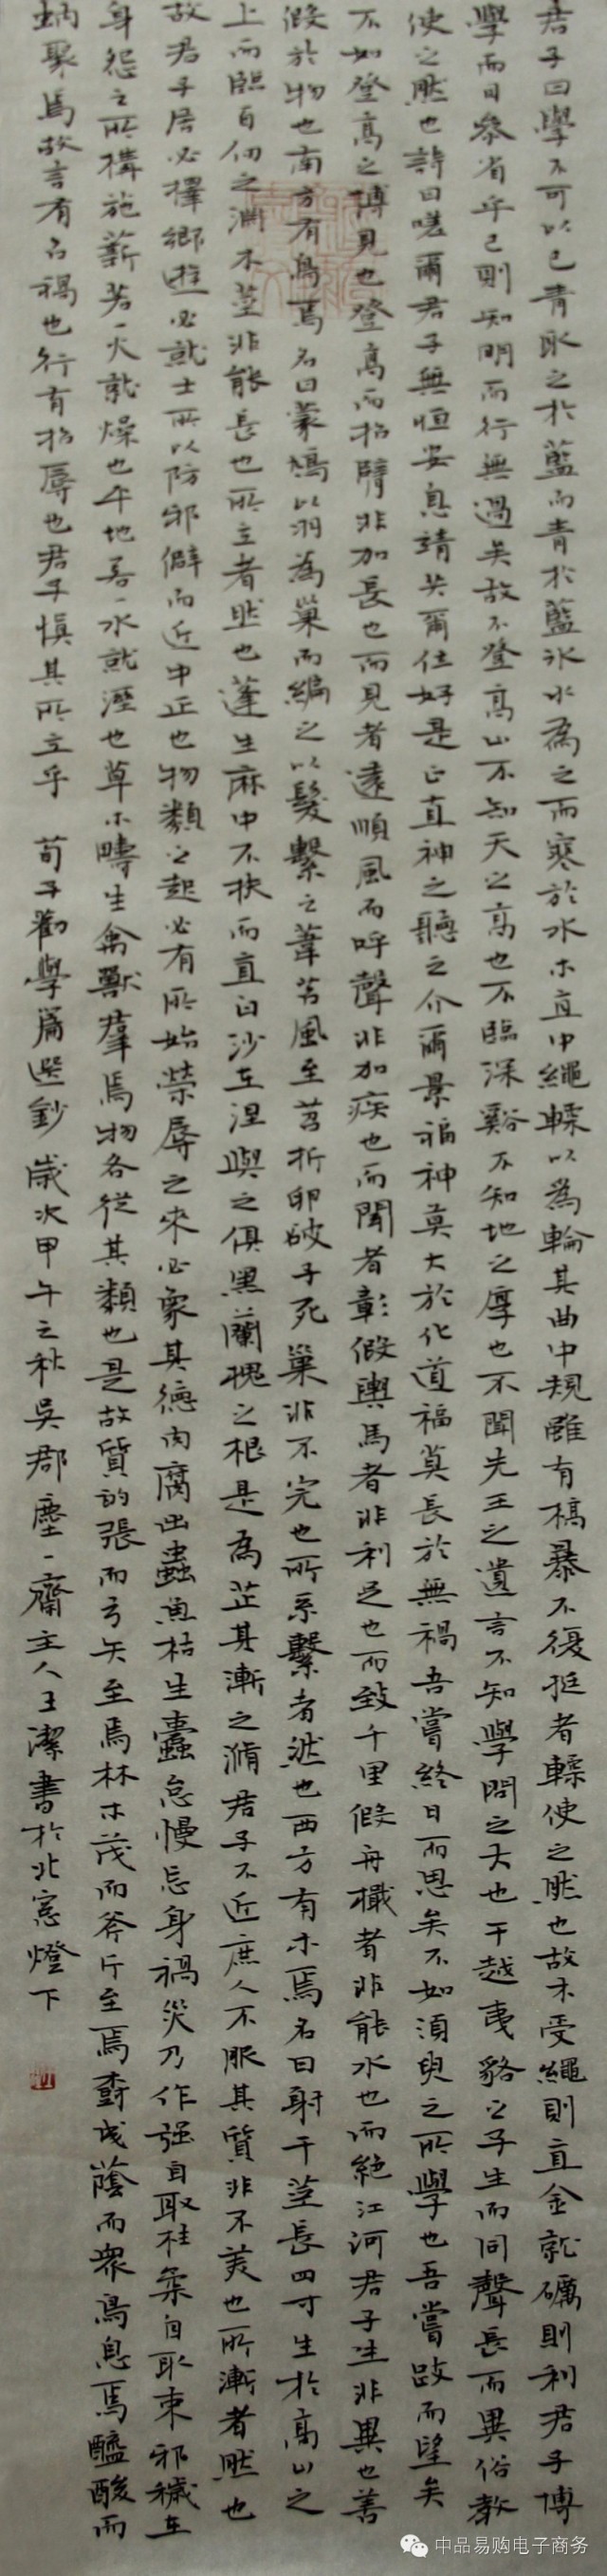 君子曰學不可以已青取之於藍而青於藍冰水為之而寒於水木直中繩輮以為輪其曲中規雖有槁暴不復挺者輮使之然也故木受繩則直金就礪則利君子博
學而日參省乎己則知明而行無過矣故不登高山不知天之高也不臨深谿不知地之厚也不聞先王之遺言不知學問之大也干越夷貉之子生而同聲長而異俗教
使之然也詩曰嗟爾君子無恒安息靖共爾位好是正直神之聽之介爾景福神莫大於化道福莫長於無禍吾嘗終日而思矣不如須臾之所學也吾嘗跂而望矣
不如登高之博見也登高而招臂非加長也而見者遠順風而呼聲非加疾也而聞者彰假輿馬者非利足也而致千里假舟檝者非能水也而絕江河君子生非異也善
假於物也南方有鳥焉名曰蒙鳩以羽為巢而編之以髮繫之葦苕風至苕折卵破子死巢非不完也所系繫者然也西方有木焉名曰射干莖長四寸生於高山之
上而臨百仞之淵木莖非能長也所立者然也蓬生麻中不扶而直白沙在涅與之俱黑蘭槐之根是為芷其漸之滫君子不近庶人不服其質非不美也所漸者然也
故君子居必擇鄉遊必就士所以防邪僻而近中正也物類之起必有所始榮辱之來必象其德肉腐出蟲魚枯生蠹怠慢忘身禍災乃作強自取柱柔自取束邪穢在
身怨之所構施薪若一火就燥也平地若一水就溼也草木疇生禽獸羣焉物各從其類也是故質的張而弓矢至焉林木茂而斧斤至焉樹成蔭而眾鳥息焉醯酸而
蚋聚焉故言有召禍也行有招辱也君子慎其所立乎 荀子勸學篇選鈔 歲次甲午之秋吳郡塵一齋主人王潔書於北窻燈下
中品易购电子商务